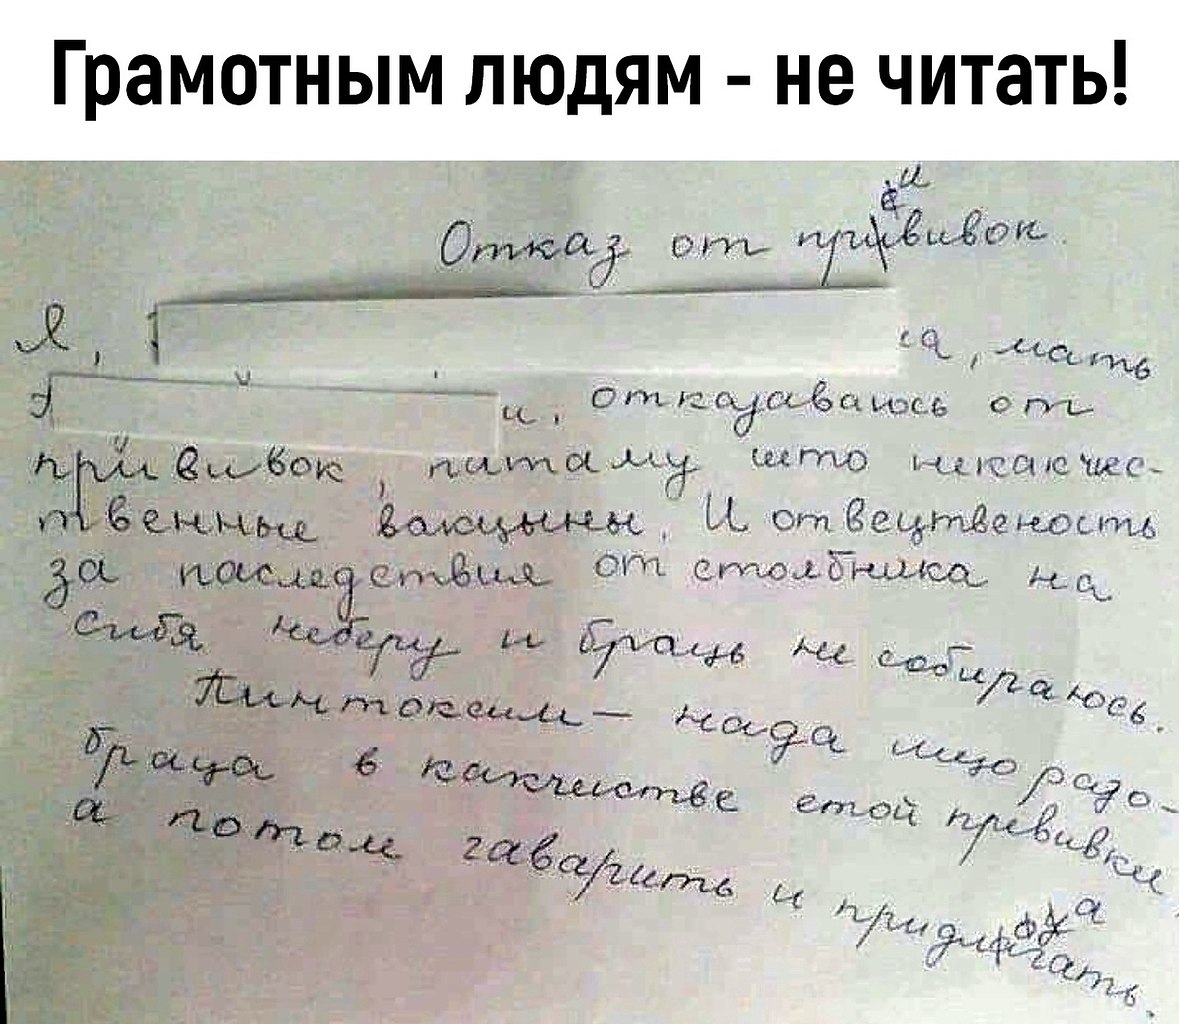 Грамотным людям - не читать!
Отказ от прививок.
Я, са, мать
и, отказаваюсь от
прививок, патаму што никакчес-
твенные вакцыны. И отвецтвеность
за паследствия от столбника на
сибя неберу и браць не собираюсь.
Пинтоксим — нада ищо разо-
браца в какчистве етой прививки,
а потом гаварить и придлагать.